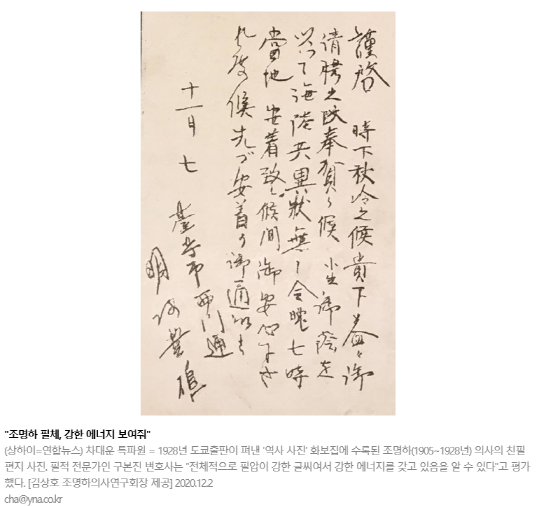 謹啓 時下秋冷之候貴下益々御
清勝之段奉賀候 小生御蔭を
以て海陸共異狀無く今晩七時
當地安着致候間御安心下さ
れ度候先づ安着の御通知
十一月七
市西門通
明河
"조명하 필체, 강한 에너지 보여줘"
(상하이=연합뉴스) 차대운 특파원 = 1928년 도쿄출판이 펴낸 '역사 사진' 화보집에 수록된 조명하(1905~1928년) 의사의 친필
편지 사진. 필적 전문가인 구본진 변호사는 "전체적으로 필압이 강한 글씨여서 강한 에너지를 갖고 있음을 알 수 있다"고 평가
했다. [김상호 조명하의사연구회장 제공] 2020.12.2
cha@yna.co.kr